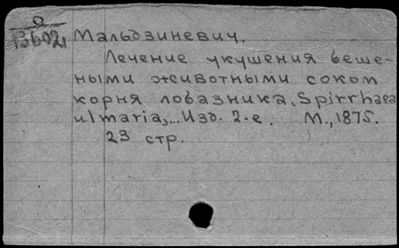 О
Мальдзиневич.
Лечение укушения беше-
ными животными соком
корня лобазника, Spirrhaea
ulmaria,... Изд. 2-е. М., 1875.
23 стр.